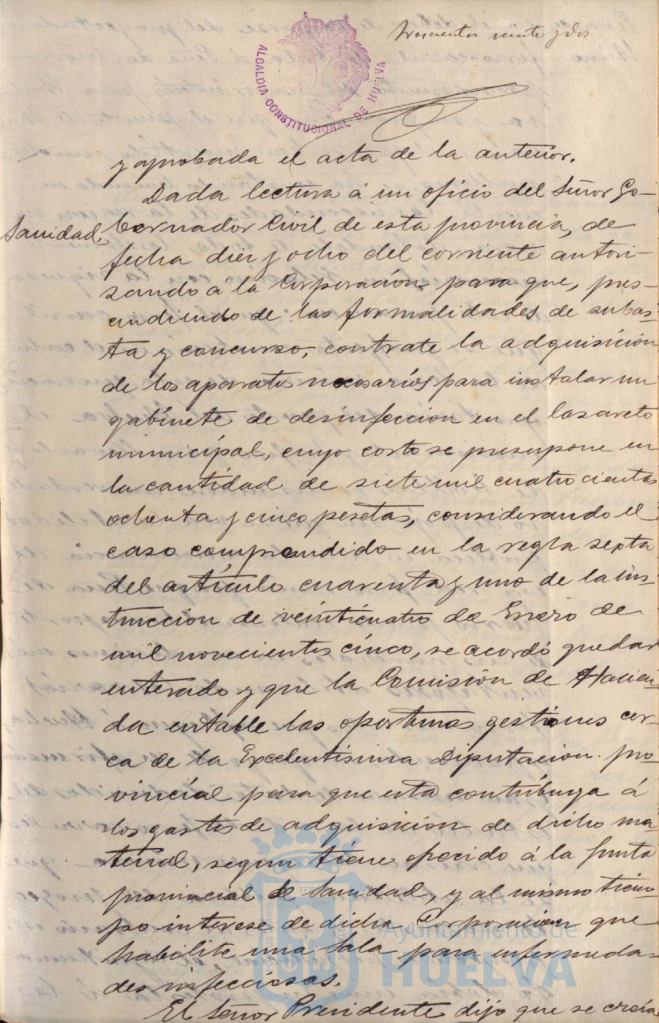 trescientos veinte y dos
ALCALDIA CONSTITUCIONAL DE HUELVA
y aprobada el acta de la anterior.
Dada lectura á un oficio del Señor Go-
Sanidad,
bernador Civil de esta provincia, de
fecha diez y ocho del corriente autori-
zando á la Corporación para que, pres-
cindiendo de las formalidades de subas-
ta y concurso, contrate la adquisición
de los aparatos necesarios para instalar un
gabinete de desinfeccion en el lazareto
municipal, cuyo costo se presupone en
la cantidad de siete mil cuatrocientas
ochenta y cinco pesetas, considerando el
caso comprendido en la regla septa
del artículo cuarenta y uno de la ins-
truccion de veinticuatro de Enero de
mil novecientos cinco, se acordó quedar
enterado y que la Comisión de Hacien-
da entable las oportunas gestiones cer-
ca de la Excelentísima Diputacion pro-
vincial para que esta contribuya á
los gastos de adquisicion de dicho ma-
terial, segun tiene ofrecido á la Junta
provincial de Sanidad, y al mismo tiem-
po interese de dicha Corporación que
habilite una sala para enfermeda-
des infecciosas.
El Señor Presidente dijo que se creía
Ayuntamiento de
HUELVA